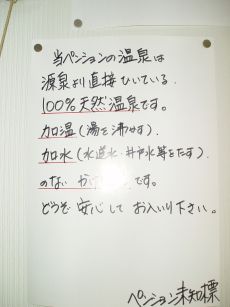 当ペンションの温泉は
源泉より直接ひいている.
100%天然温泉です。
加温(湯を沸かす)
加水(水道水・井戸水等をたす)
のない か です。
どうぞ安心してお入り下さい。
ペンション未知標